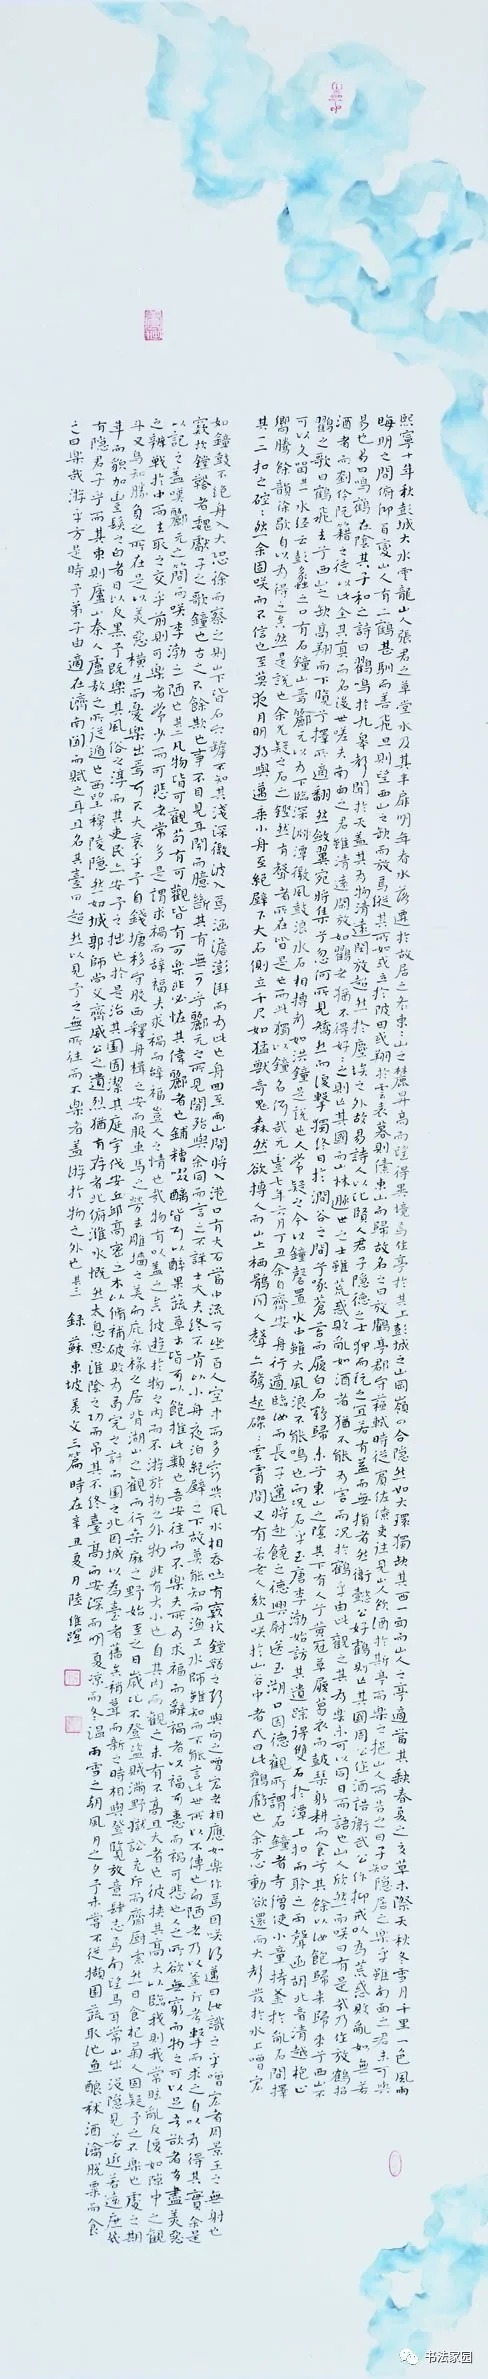 熙寧十年秋彭城大水雲龍山人張君之草堂水及其半扉明年春水落遷於故居之東東山之麓昇高而望得異境焉作亭於其上彭城之山岡嶺四合隱然如大環獨缺其西一面而山人之亭適當其缺春夏之交草木際天秋冬雪月千里一色風雨
晦明之間俯仰百變山人有二鶴甚馴而善飛旦則望西山之缺而放焉縱其所如或立於陂田或翔於雲表暮則傃東山而歸故名之曰放鶴亭郡守蘇軾時從賓佐僚吏往見山人飲酒於斯亭而樂之挹山人而告之曰子知隱居之樂乎雖南面之君未可與
易也易曰鳴鶴在陰其子和之詩曰鶴鳴於九皋聲聞於天蓋其為物清遠閒放超然於塵埃之外故易詩人以比賢人君子隱德之士狎而玩之宜若有益而無損者然衛懿公好鶴則亡其國周公作酒誥衛武公作抑戒以為荒惑敗亂如無若
酒者而劉伶阮籍之徒以此全其真而名後世嗟夫南面之君雖清遠閒放如鶴者猶不得好之則亡其國而山林遁世之士雖荒惑敗亂如酒者猶不能為害而況於鶴乎由此觀之其為樂未可以同日而語也山人欣然而咲曰有是哉乃作放鶴招
鶴之歌曰鶴飛去兮西山之缺高翔而下覽兮擇所適翻然斂翼宛將集兮忽何所見矯然而復擊獨終日於澗谷之間兮啄蒼苔而履白石鶴歸來兮東山之陰其下有人兮黃冠草履葛衣而鼓琴躬耕而食兮其餘以汝飽歸來歸來兮西山不
可以久留其一水經云彭蠡之口有石鐘山焉酈元以為下臨深潭微風鼓浪水石相搏聲如洪鐘是說也人常疑之今以鐘磬置水中雖大風浪不能鳴也而況石乎至唐李渤始訪其遺踪得雙石於潭上扣而聆之南聲函胡北音清越枹止
響騰餘韻徐歇自以為得之矣然是說也余尤疑之石之鏗然有聲者所在皆是也而此獨以鐘名何哉元豐七年六月丁丑余自齊安舟行適臨汝而長子邁將赴饒之德興尉送至湖口因得觀所謂石鐘者寺僧使小童持斧於亂石間擇
其一二扣之硿硿然余固咲而不信也至莫夜月明獨與邁乘小舟至絕壁下大石側立千尺如猛獸奇鬼森然欲搏人而山上栖鶻聞人聲亦驚起磔磔雲霄間又有若老人欬且咲於山谷中者或曰此鸛鶴也余方心動欲還而大聲發於水上噌宏
如鐘鼓不絕舟人大恐徐而察之則山下皆石穴罅不知其淺深微波入焉涵澹澎湃而為此也舟回至兩山間將入港口有大石當中流可坐百人空中而多竅與風水相吞吐有窾坎鏜鞳之聲與向之噌宏者相應如樂作焉因咲謂邁曰汝識之乎噌宏者周景王之無射也
窾坎鏜鞳者魏獻子之歌鐘也古之人不余欺也事不目見耳聞而臆斷其有無可乎酈元之所見聞殆與余同而言之不詳士大夫終不肯以小舟夜泊絕壁之下故莫能知而漁工水師雖知而不能言此世所以不傳也而陋者乃以斧斤考擊而求之自以為得其實余是
以記之蓋嘆酈元之簡而咲李渤之陋也其二凡物皆有可觀苟有可觀皆有可樂非必怪奇偉麗者也餔糟啜醨皆可以醉果蔬草木皆可以飽推此類也吾安往而不樂夫所為求福而辭禍者以福可喜而禍可悲也人之所欲無窮而物之可以足吾欲者有盡美惡
之辨戰於中而去取之擇交乎前則可樂者常少而可悲者常多是謂求禍而辭福夫求禍而辭福豈人之情也哉物有以蓋之矣彼遊於物之內而不游於物之外物非有大小也自其內而觀之未有不高且大者也彼挾其高大以臨我則我常眩亂反復如隙中之觀
斗又烏知勝負之所在是以美惡橫生而憂樂出焉可不大哀乎予自錢塘移守膠西釋舟楫之安而服車馬之勞去雕墻之美而庇采椽之居背湖山之觀而行桑麻之野始至之日歲比不登盜賊滿野獄訟充斥而齋廚索然日食杞菊人固疑予之不樂也處之期
年而貌加豐髮之白者日以反黑予既樂其風俗之淳而其吏民亦安予之拙也於是治其園囿潔其庭宇伐安丘高密之木以脩補破敗為苟完之計而園之北因城以為臺者舊矣稍葺而新之時相與登覽放意肆志焉南望馬耳常山出沒隱見若近若遠庶幾
有隱君子乎而其東則廬山秦人盧敖之所從遁也西望穆陵隱然如城郭師尚父齊威公之遺烈猶有存者北俯濰水慨然太息思淮陰之功而弔其不終臺高而安深而明夏涼而冬溫雨雪之朝風月之夕予未嘗不從擷園蔬取池魚釀秫酒瀹脫粟而食
之曰樂哉游乎方是時予弟子由適在濟南聞而賦之耳且名其臺曰超然以見予之無所往而不樂者蓋游於物之外也其三　錄蘇東坡美文三篇時在辛丑夏月陸維躍
书法家园